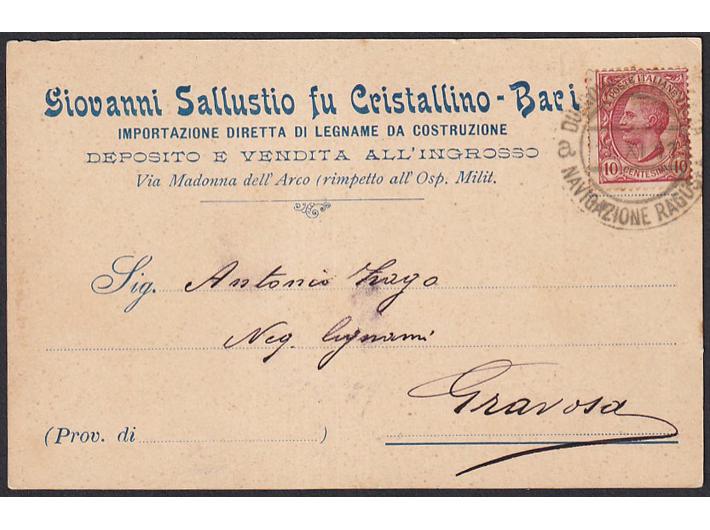 Giovanni Sallustio fu Cristallino - Bari
IMPORTAZIONE DIRETTA DI LEGNAME DA COSTRUZIONE
DEPOSITO E VENDITA ALL'INGROSSO
Via Madonna dell'Arco (rimpetto all'Osp. Milit.
POSTE ITALIANE
10 CENTESIMI 10
NAVIGAZIONE RAGUSEA
Sig. Antonio Zago
Neg. legnami
Gravosa
(Prov. di )